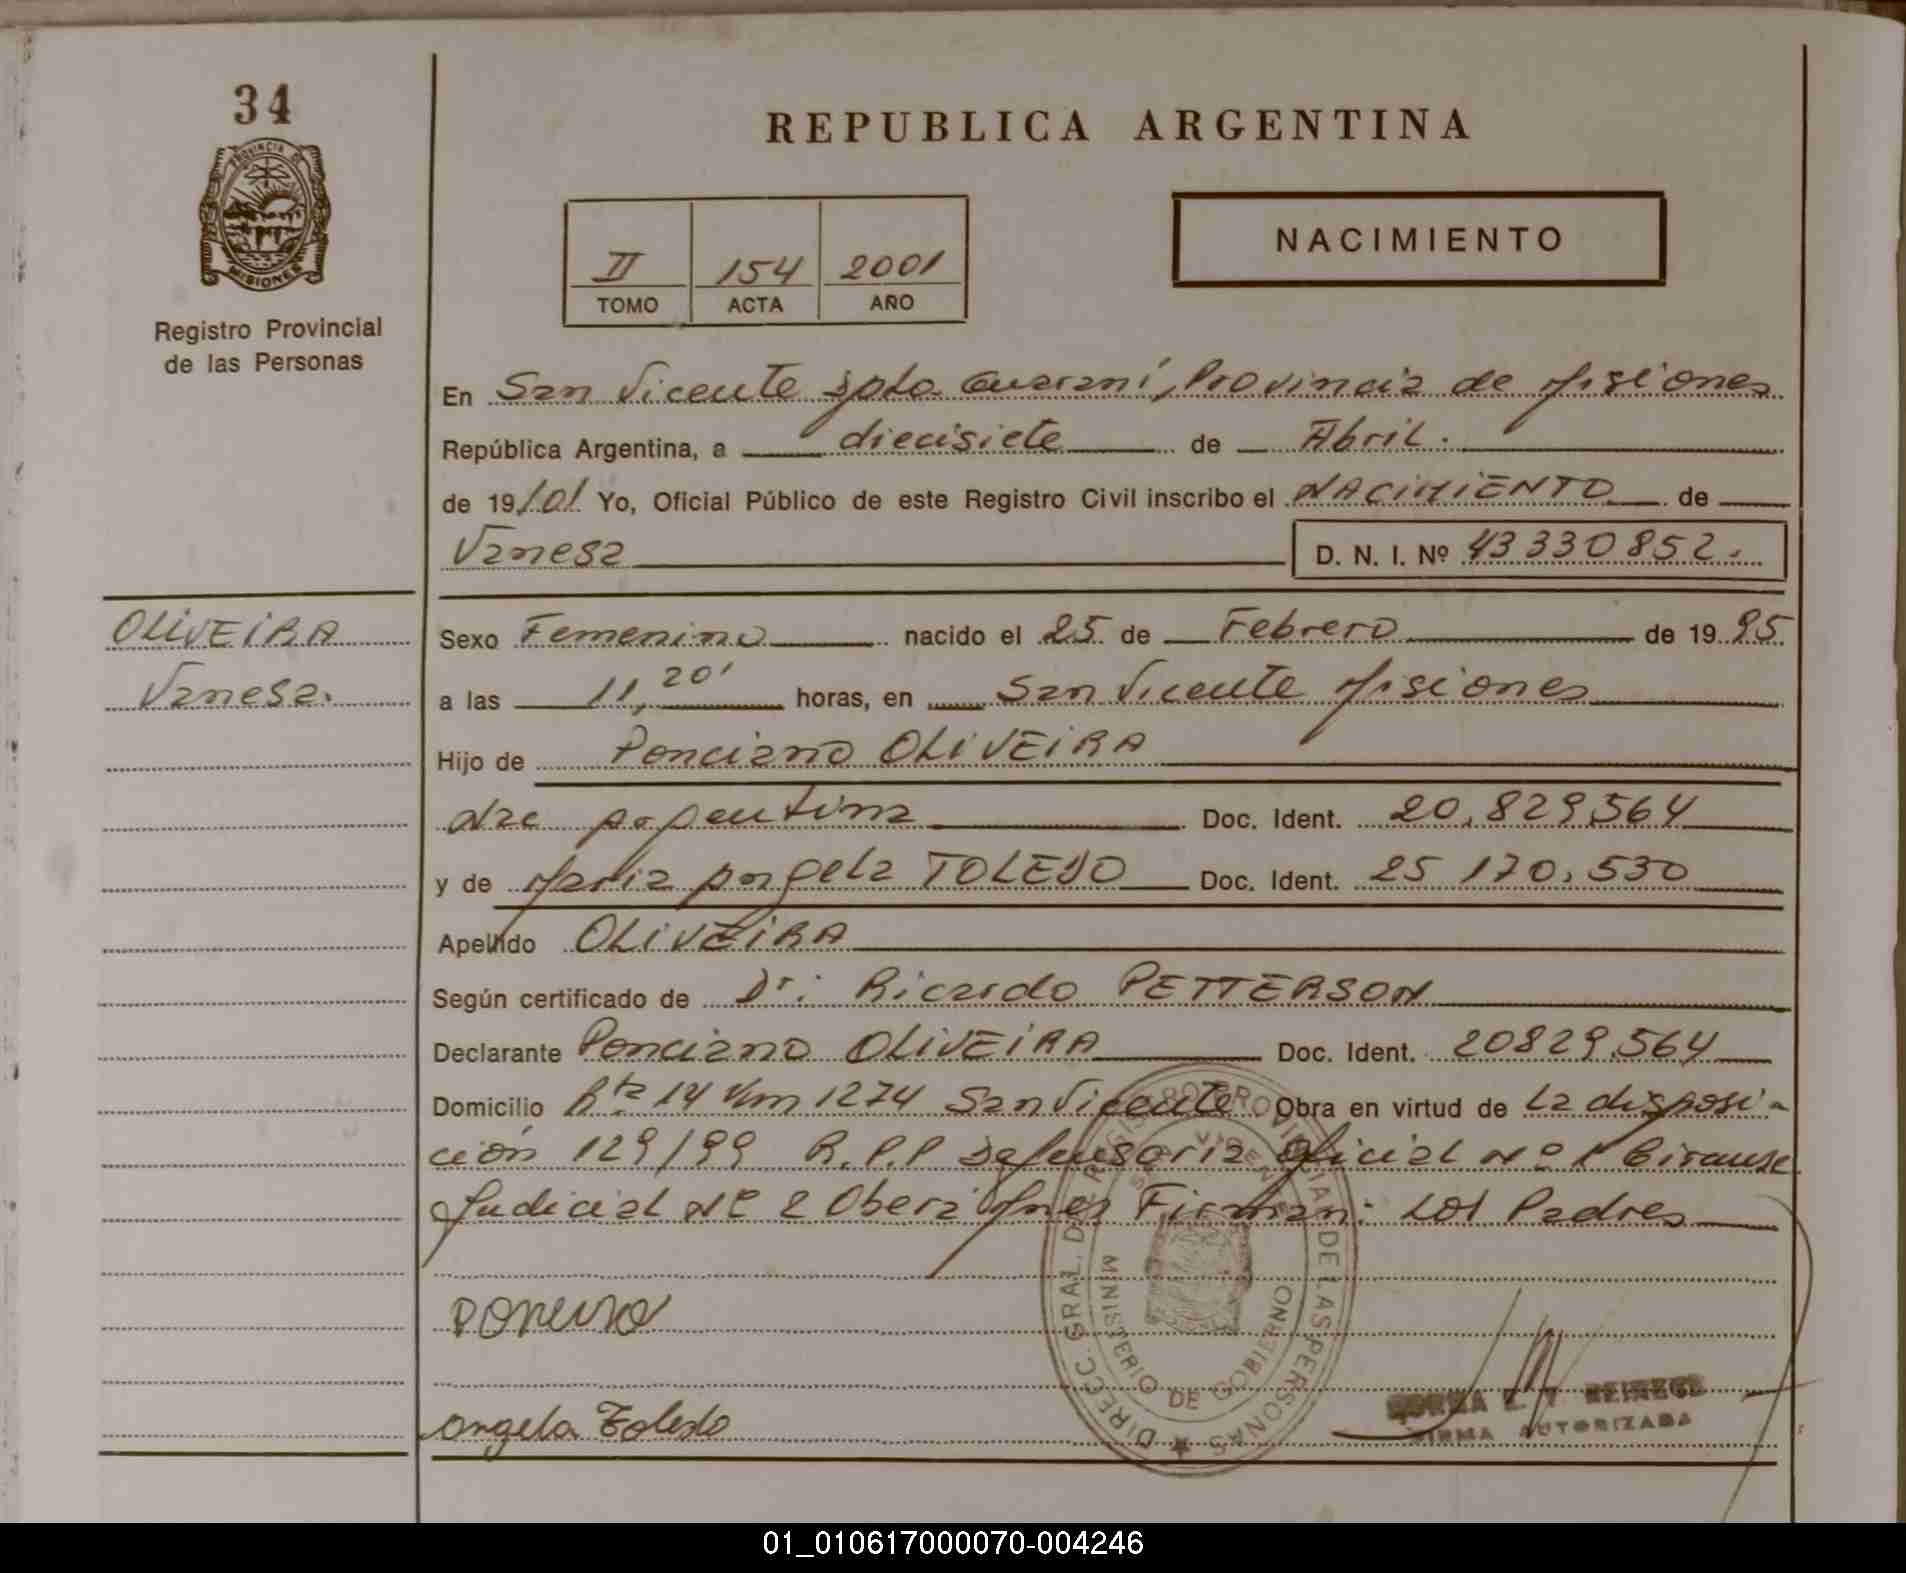 34
PROVINCIA DE
MISIONES
Registro Provincial
de las Personas
REPUBLICA ARGENTINA
II 154 2001
TOMO ACTA AÑO
NACIMIENTO
En San Vicente Dpto. Guaraní, Provincia de Misiones
República Argentina, a diecisiete de Abril.
de 19/01 Yo, Oficial Público de este Registro Civil inscribo el NACIMIENTO de
Vanesa D. N. I. Nº 43330852.
OLIVEIRA
Vanesa.
Sexo Femenino nacido el 25 de Febrero de 19 95
a las 11,20' horas, en San Vicente Misiones
Hijo de Ponciano OLIVEIRA
nac argentina Doc. Ident. 20.829.564
y de Maria Angela TOLEDO Doc. Ident. 25 170.530
Apellido OLIVEIRA
Según certificado de Dr: Ricardo PETTERSON
Declarante Ponciano OLIVEIRA Doc. Ident. 20829.564
Domicilio Rta 14 Km 1274 San Vicente Obra en virtud de La disposi-
ción 129/99 R.P.P Defensoria Oficial Nº 1
Judicial Nº 2 Obera Mnes Firman: Los Padres
Angela Toledo
DIRECC. GRAL. DE REGISTRO PROVINCIAL DE LAS PERSONAS
SAN VICENTE
MINISTERIO DE GOBIERNO
NORMA
FIRMA AUTORIZADA
01_010617000070-004246